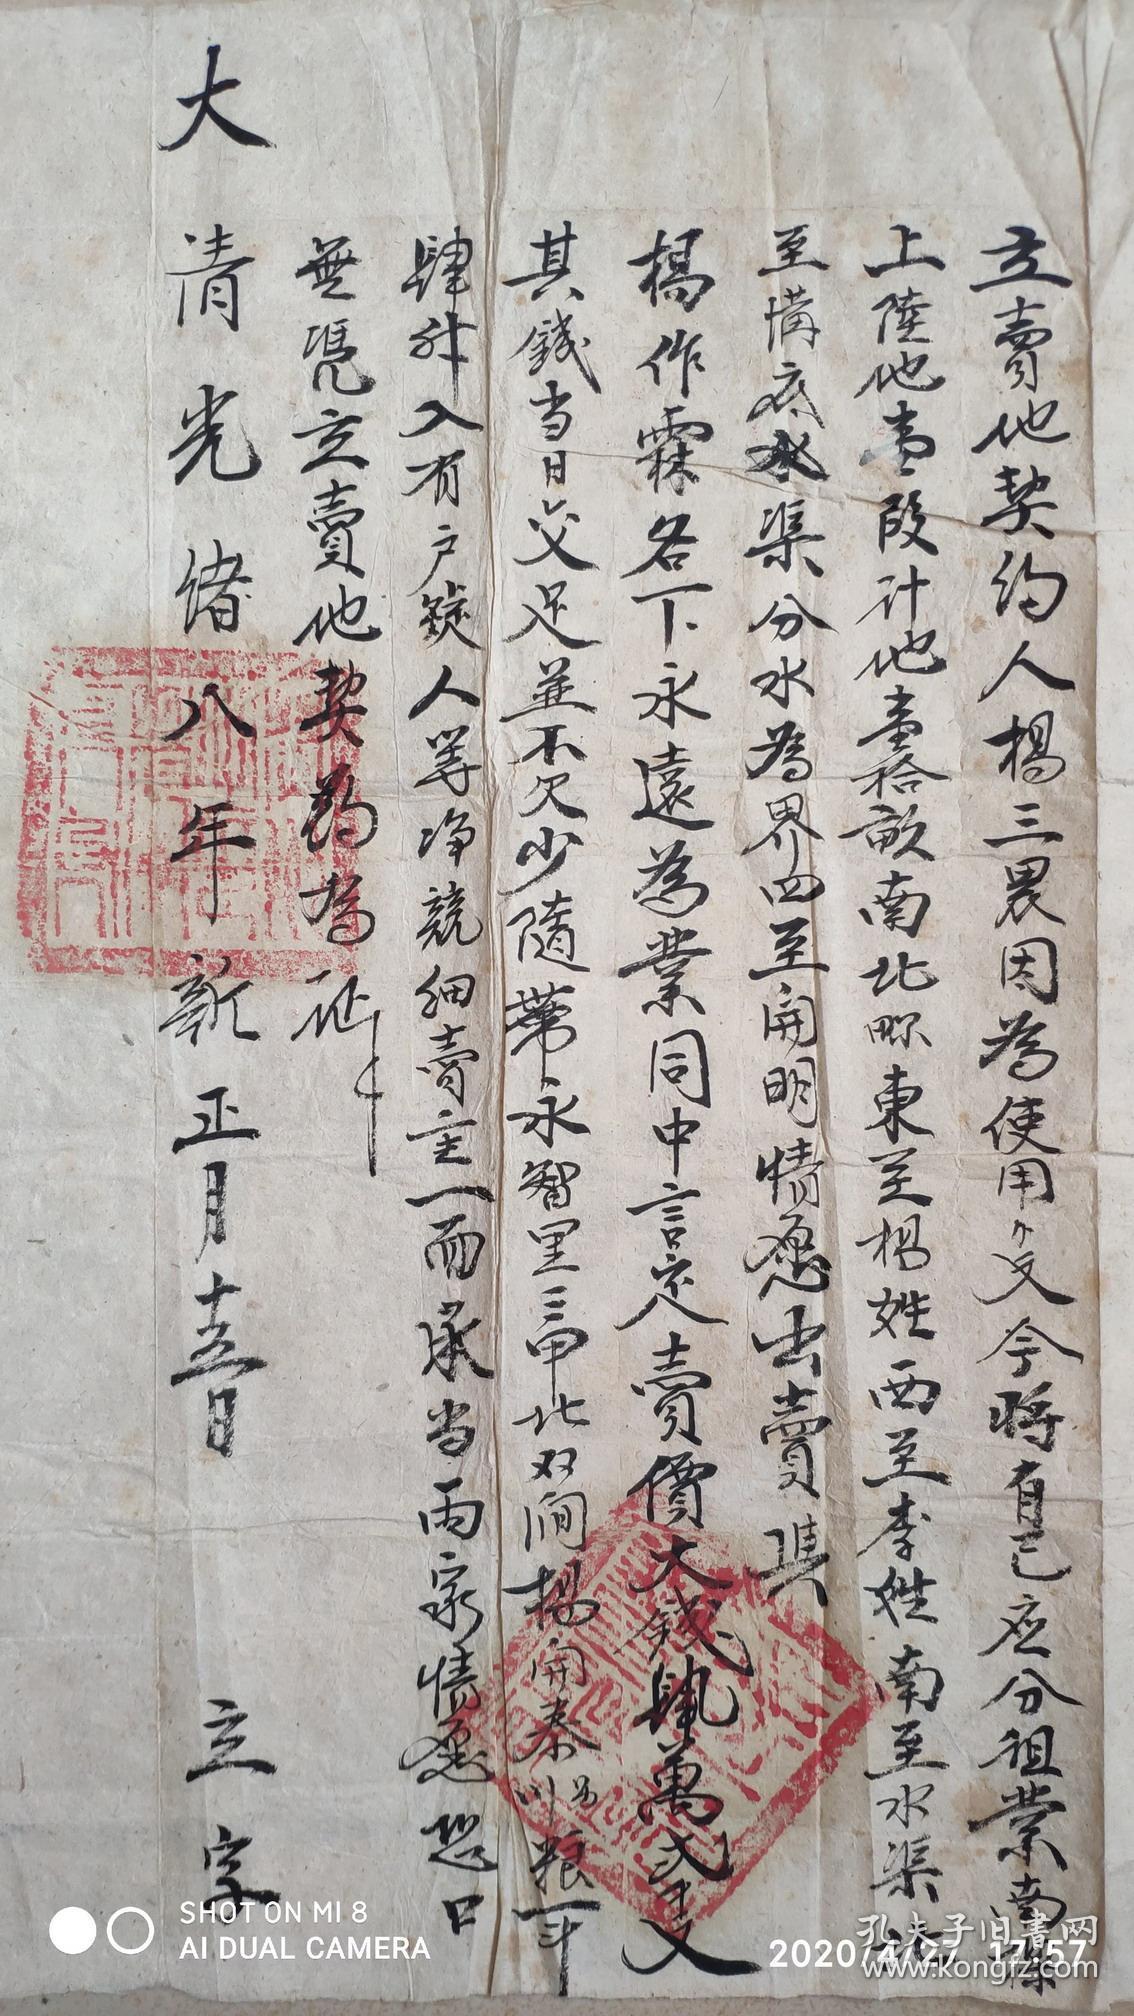 立賣地契約人楊三畏因為使用不足今將自己应分祖業南探
上陸地壹段計地壹拾畝南北畛東至楊姓西至李姓南至水渠北
至溝底水渠分水為界四至開明情愿出賣與
楊作霖名下永遠為業同中言定賣價大錢肆萬弍千文
其錢当日交足並不欠少隨帶永智里三甲北双澗楊開泰粮一斗
肆升入有户族人等净競細賣主一面承当兩家情愿恐口
無凭立賣地契約為証
大清光緒八年新正月十五日 立字
SHOT ON MI 8
AI DUAL CAMERA
2020/4/27 17:57
孔夫子旧書网
www.kongfz.com